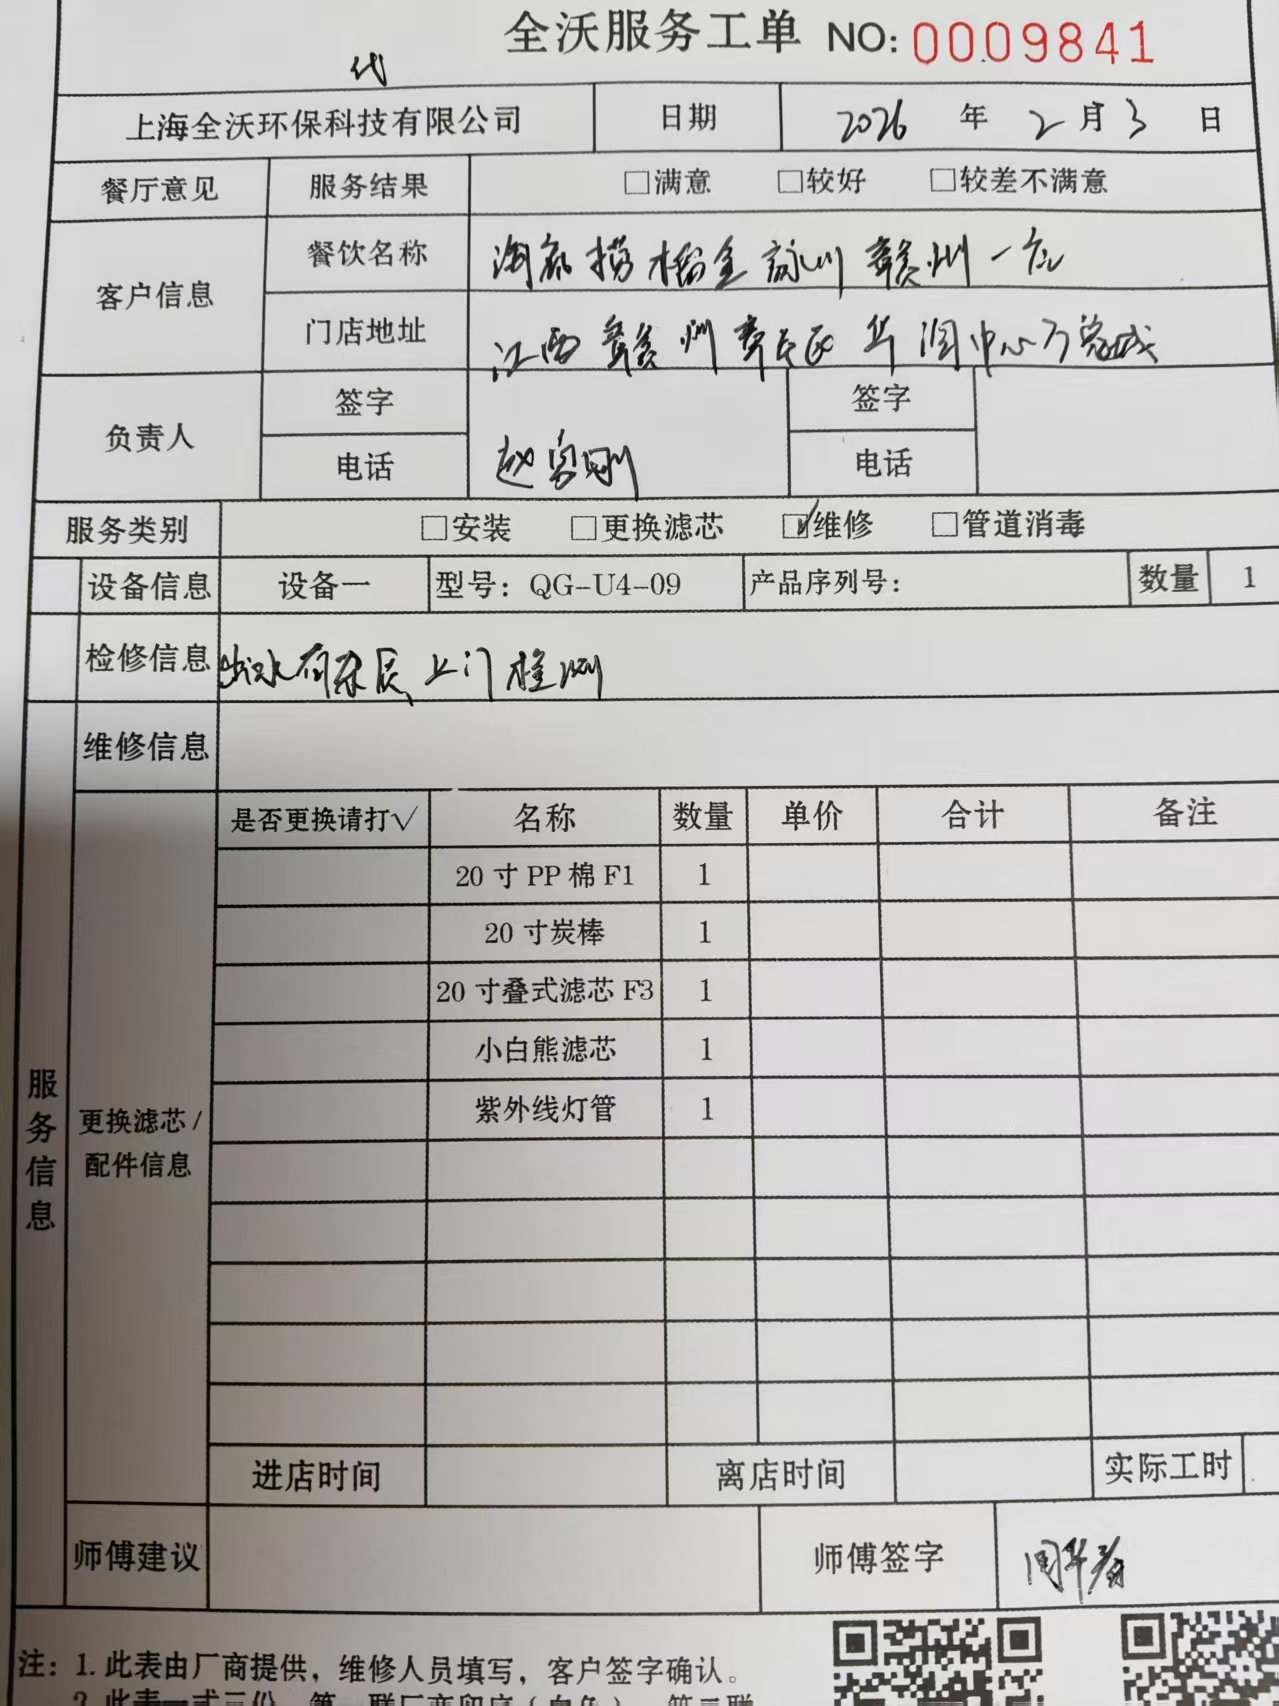 全沃服务工单 NO: 0009841
代
上海全沃环保科技有限公司 日期 2026 年 2 月 3 日
餐厅意见 服务结果 □满意 □较好 □较差不满意
客户信息 餐饮名称 赣州一店
门店地址 江西赣州章贡区华润中心万象城
负责人 签字 签字
电话 赵 刚 电话
服务类别 □安装 □更换滤芯 ☑维修 □管道消毒
设备信息 设备一 型号：QG-U4-09 产品序列号： 数量 1
检修信息 出水有杂质 上门检测
维修信息
是否更换请打√ 名称 数量 单价 合计 备注
20 寸 PP 棉 F1 1
20 寸炭棒 1
20 寸叠式滤芯 F3 1
小白熊滤芯 1
紫外线灯管 1
服务信息
更换滤芯/
配件信息
进店时间 离店时间 实际工时
师傅建议 师傅签字 周华
注：1. 此表由厂商提供，维修人员填写，客户签字确认。
2. 此表一式三份，第一联厂商留底（白色），第二联